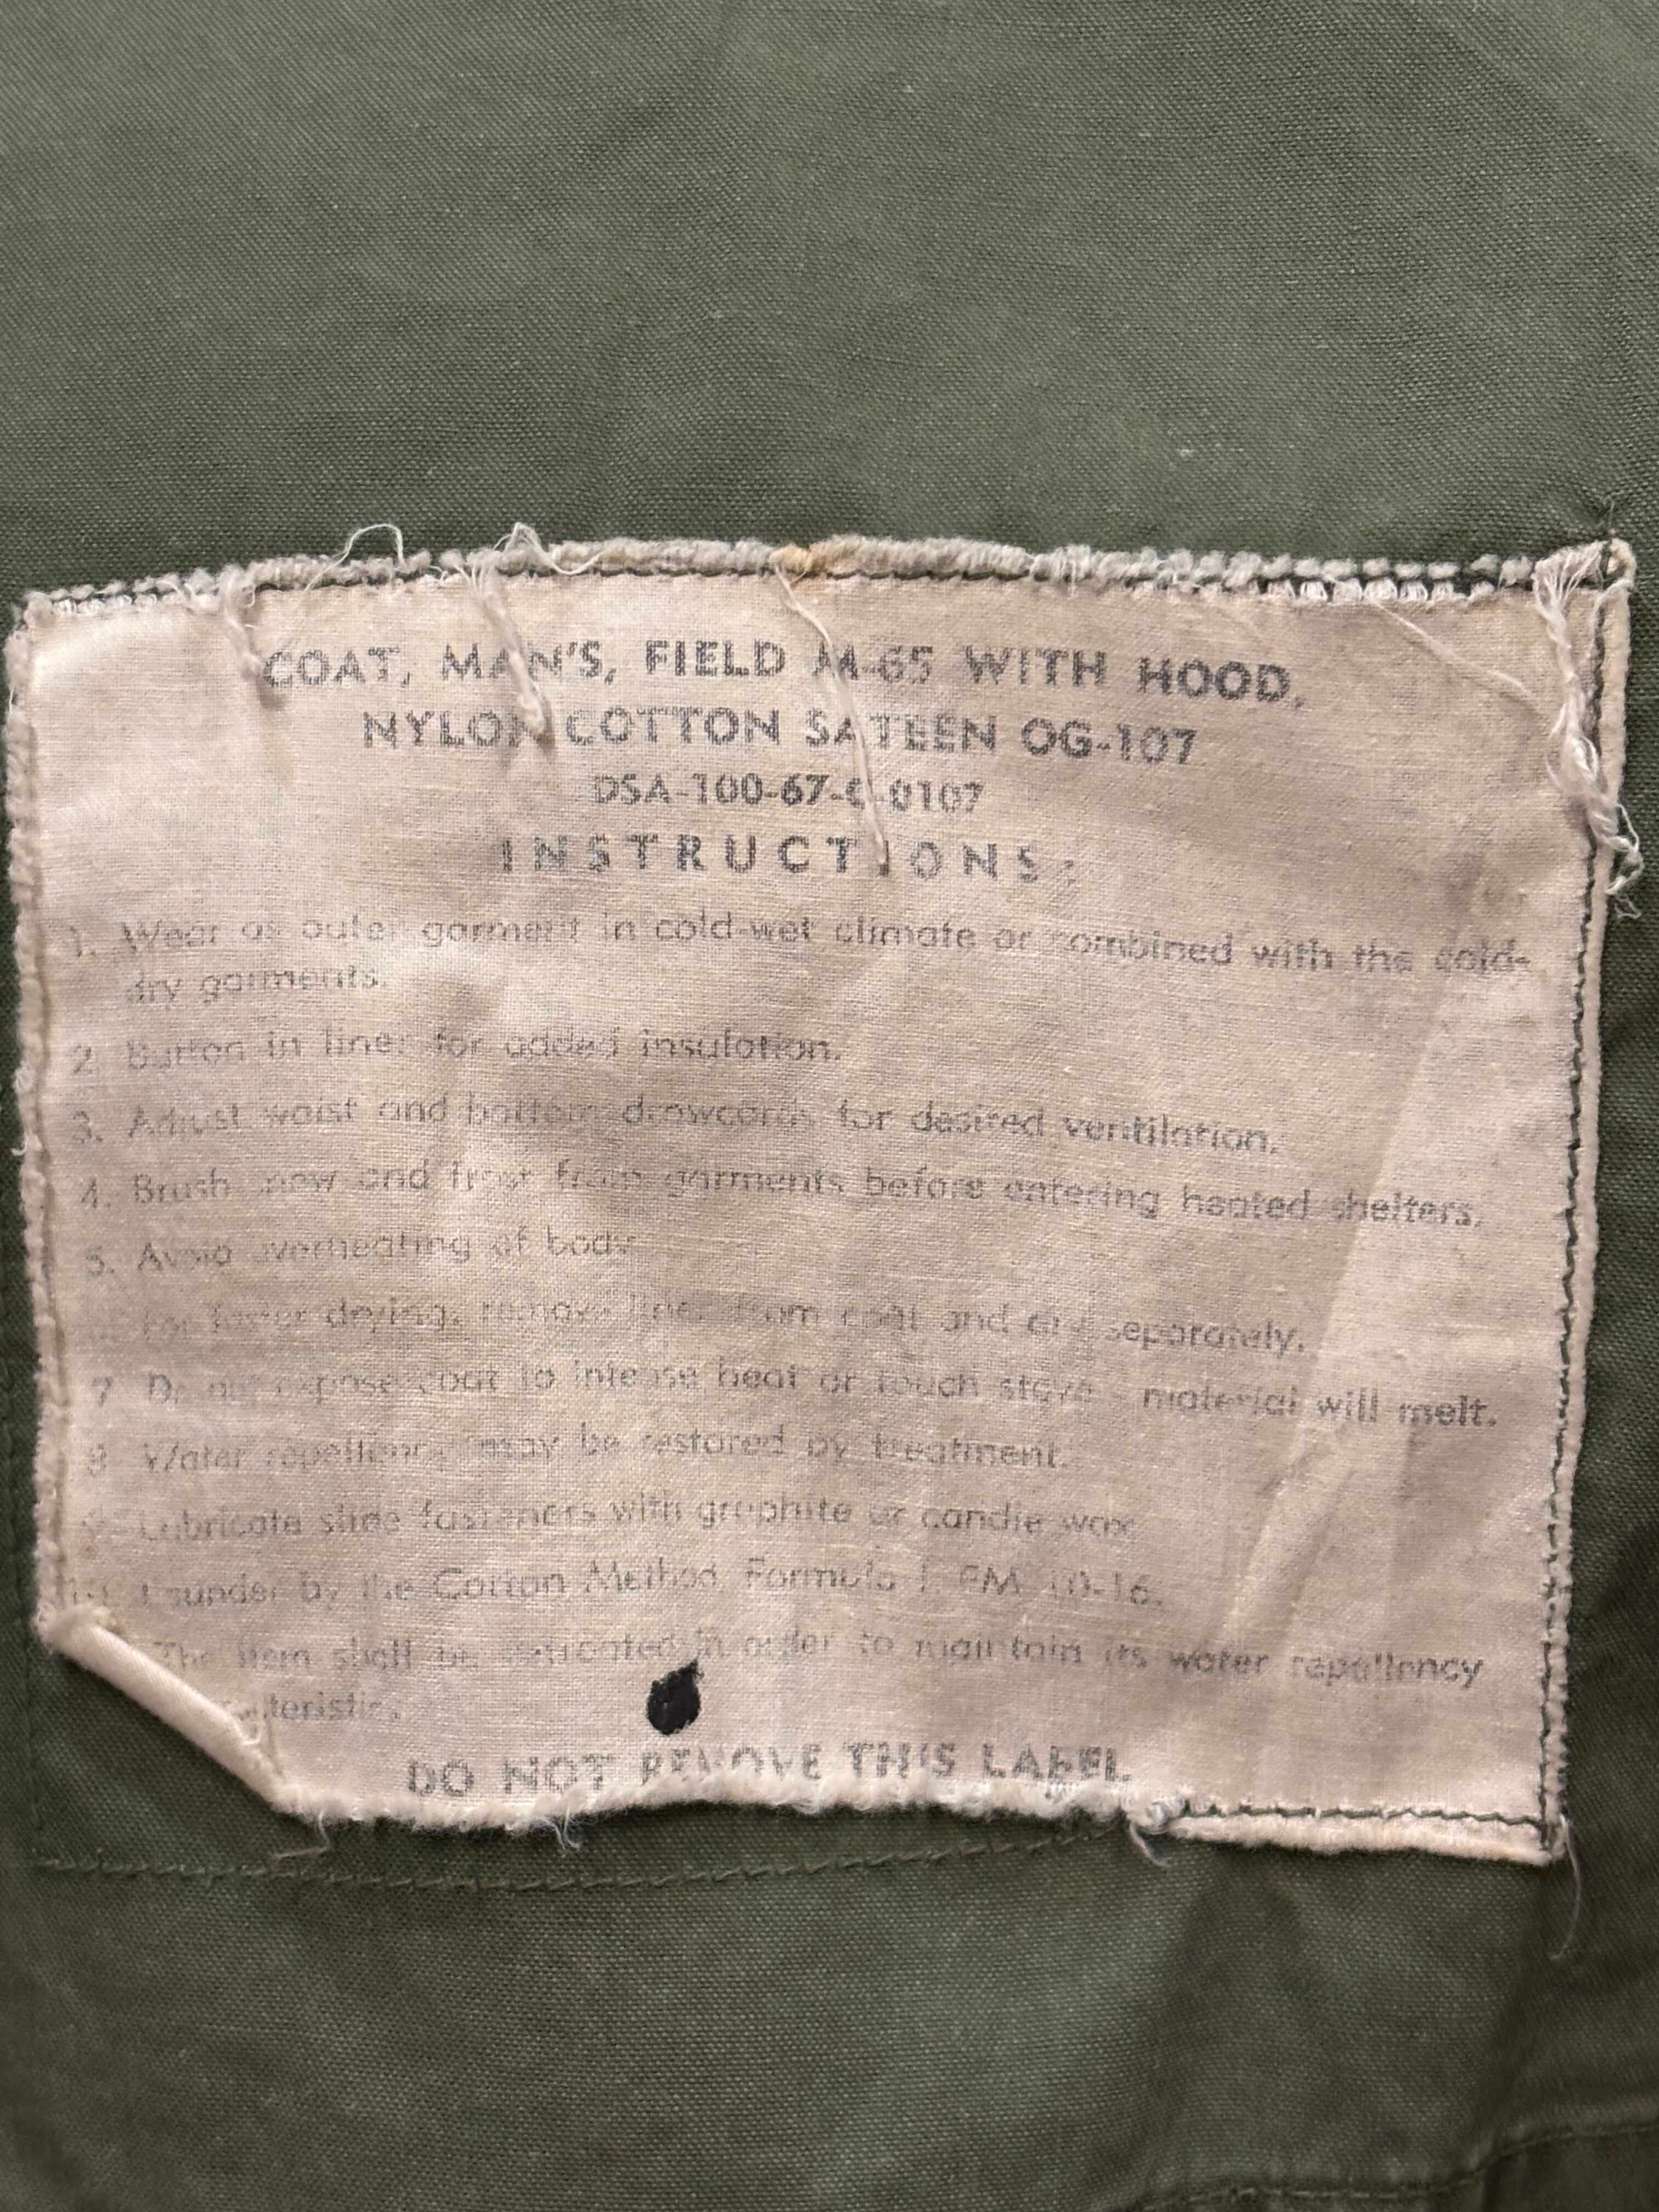 COAT, MAN'S, FIELD M-65 WITH HOOD,
NYLON COTTON SATEEN OG-107
DSA-100-67-C-0107
INSTRUCTIONS:
1. Wear as outer garment in cold-wet climate or combined with the cold-
dry garments.
2. Button in liner for added insulation.
3. Adjust waist and bottom drawcords for desired ventilation.
4. Brush snow and frost from garments before entering heated shelters.
5. Avoid overheating of body.
For faster drying, remove liner from coat and dry separately.
7. Do not expose coat to intense heat or touch stove - material will melt.
8. Water repellency may be restored by treatment.
9. Lubricate slide fasteners with graphite or candle wax.
10. Launder by the Cotton Method, Formula I, FM 10-16.
The item shall be retreated in order to maintain its water repellency
DO NOT REMOVE THIS LABEL